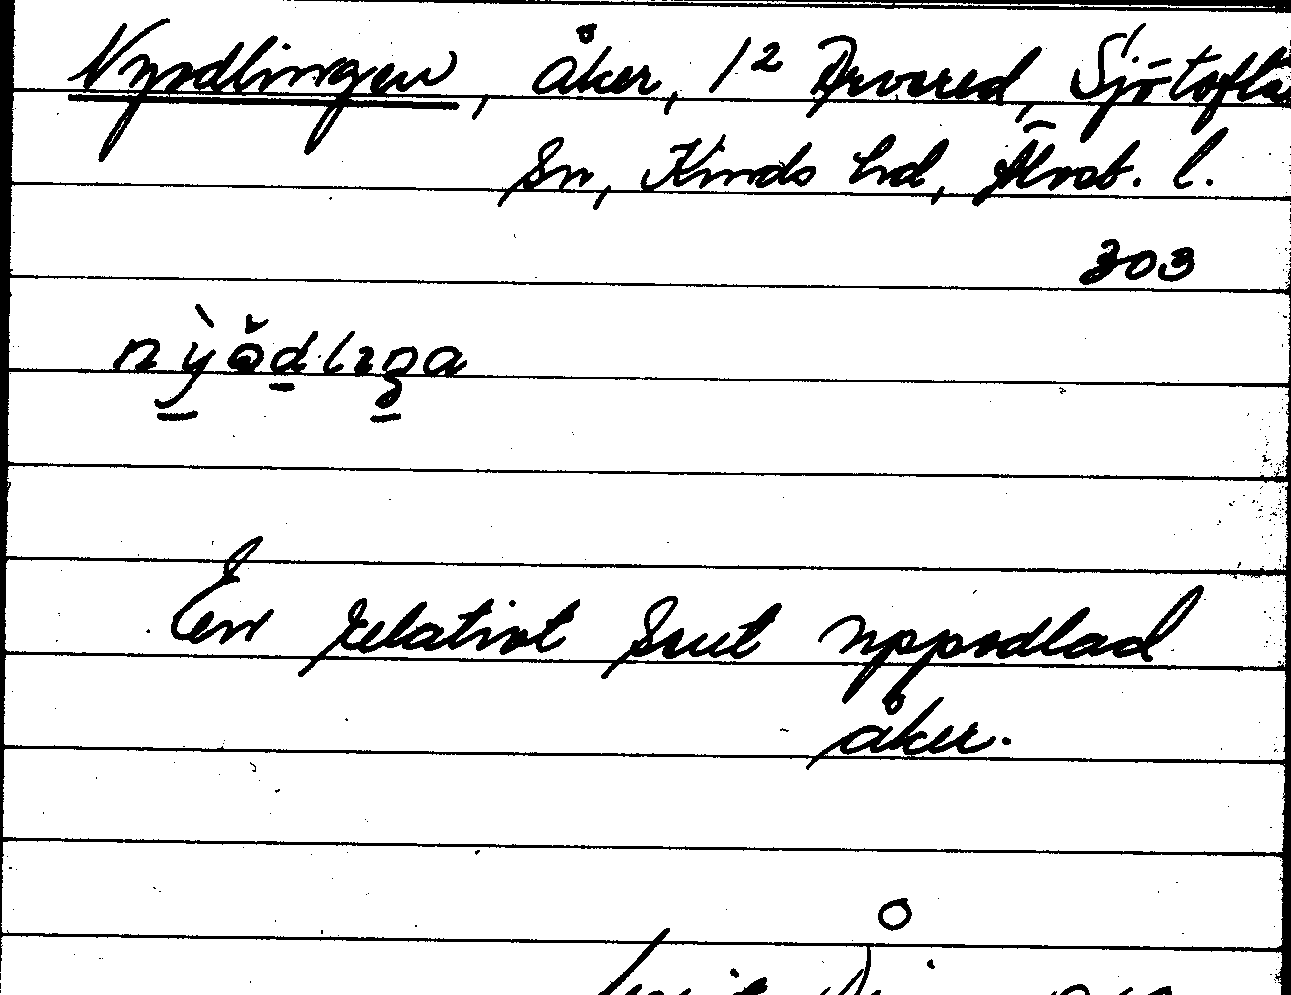 Nyodlingen, åker, 1² Arvered, Sjötofta
Sn, Kinds hd, Älvsb. l.
303
nỳo̊dlıŋa
En relativt sent uppodlad
åker.